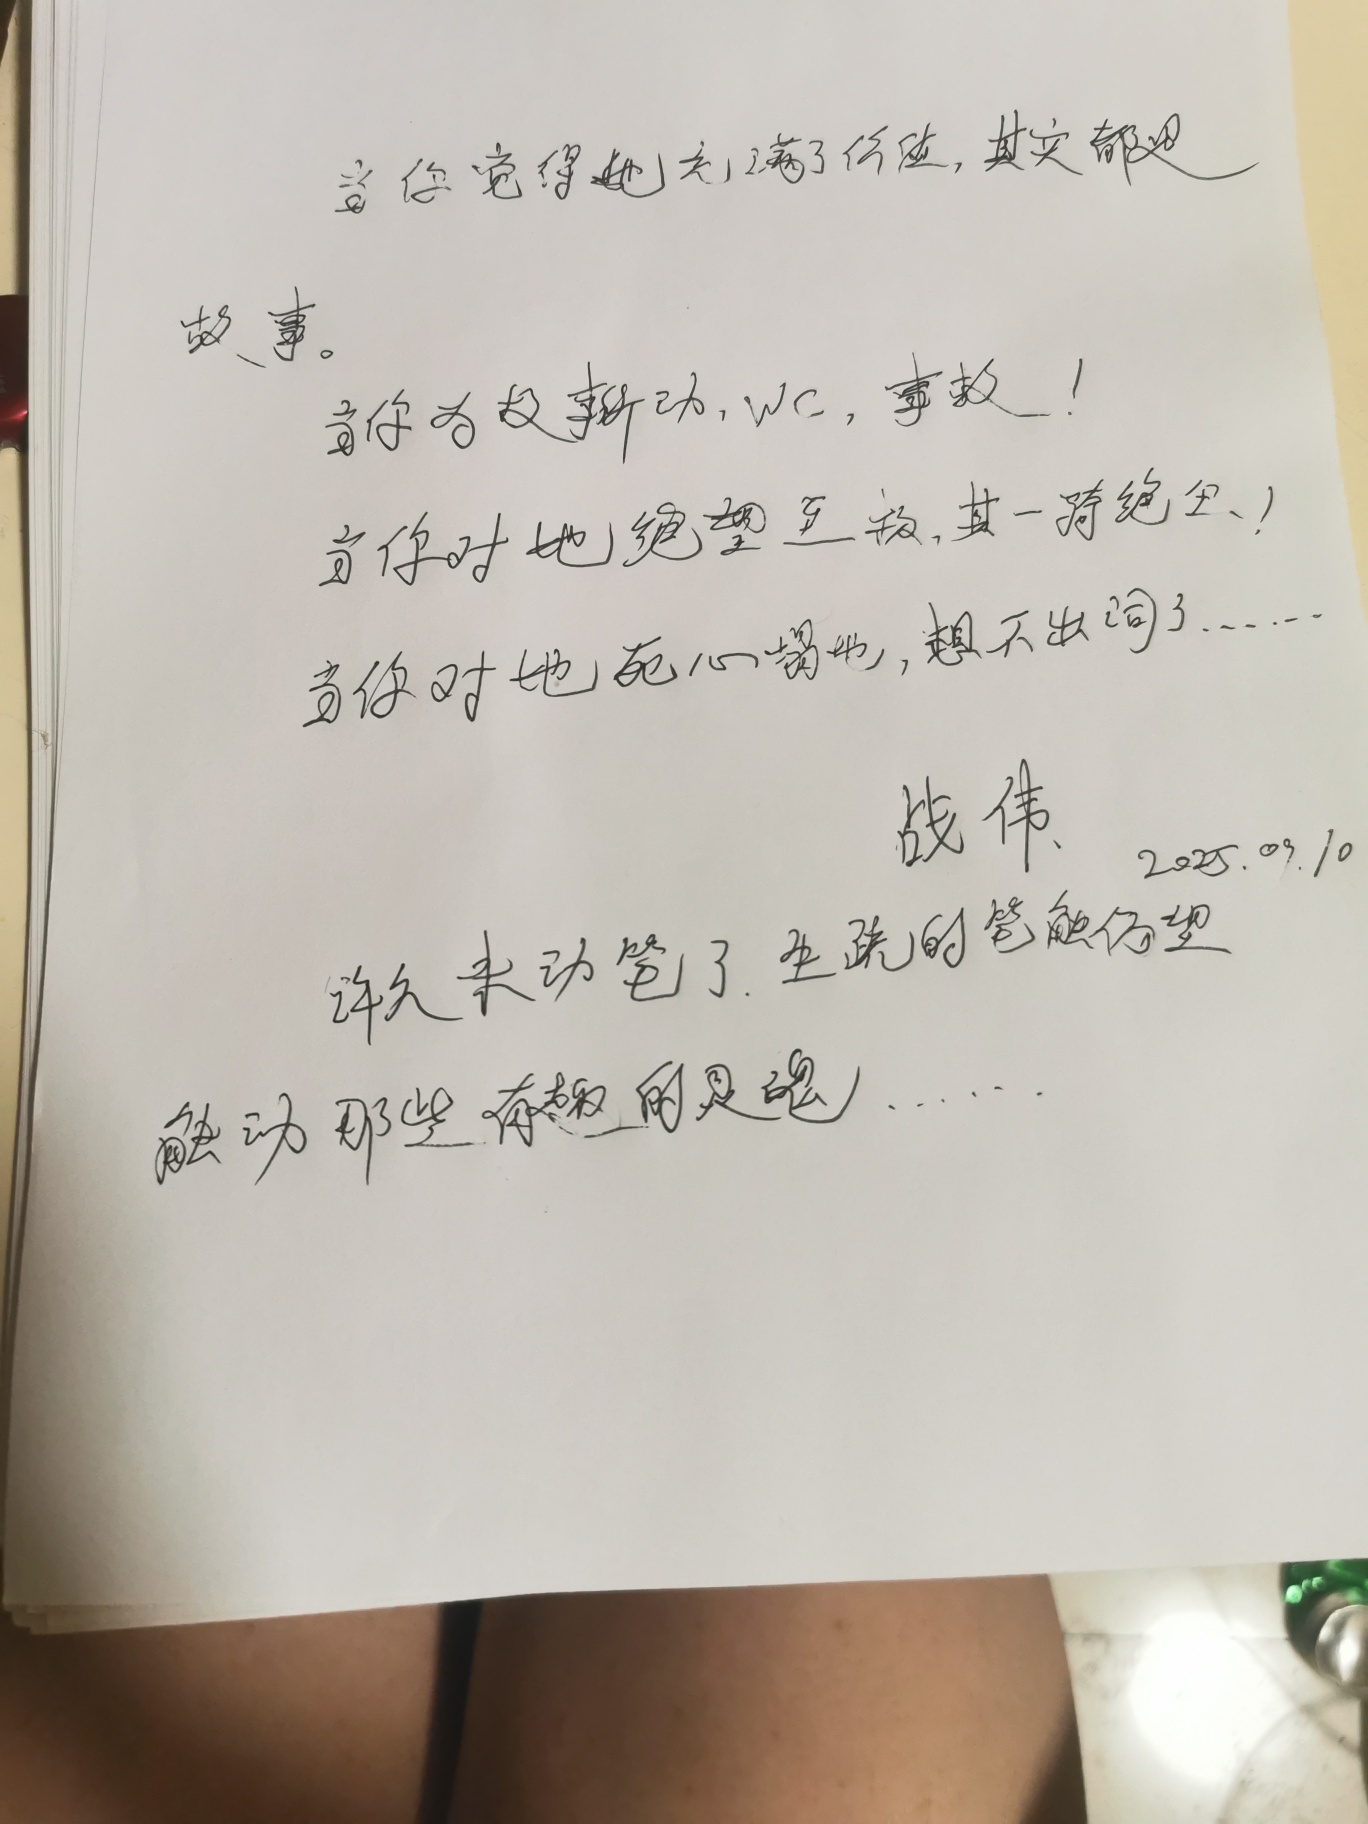 当你觉得她充满了价值,其实都是
故事。
当你为故事所动,WC,事故!
当你对她绝望至极,其一骑绝尘!
当你对她死心塌地,想不出词了……
战伟
2025.09.10
许久未动笔了.生疏的笔触仍望
触动那些有趣的灵魂……